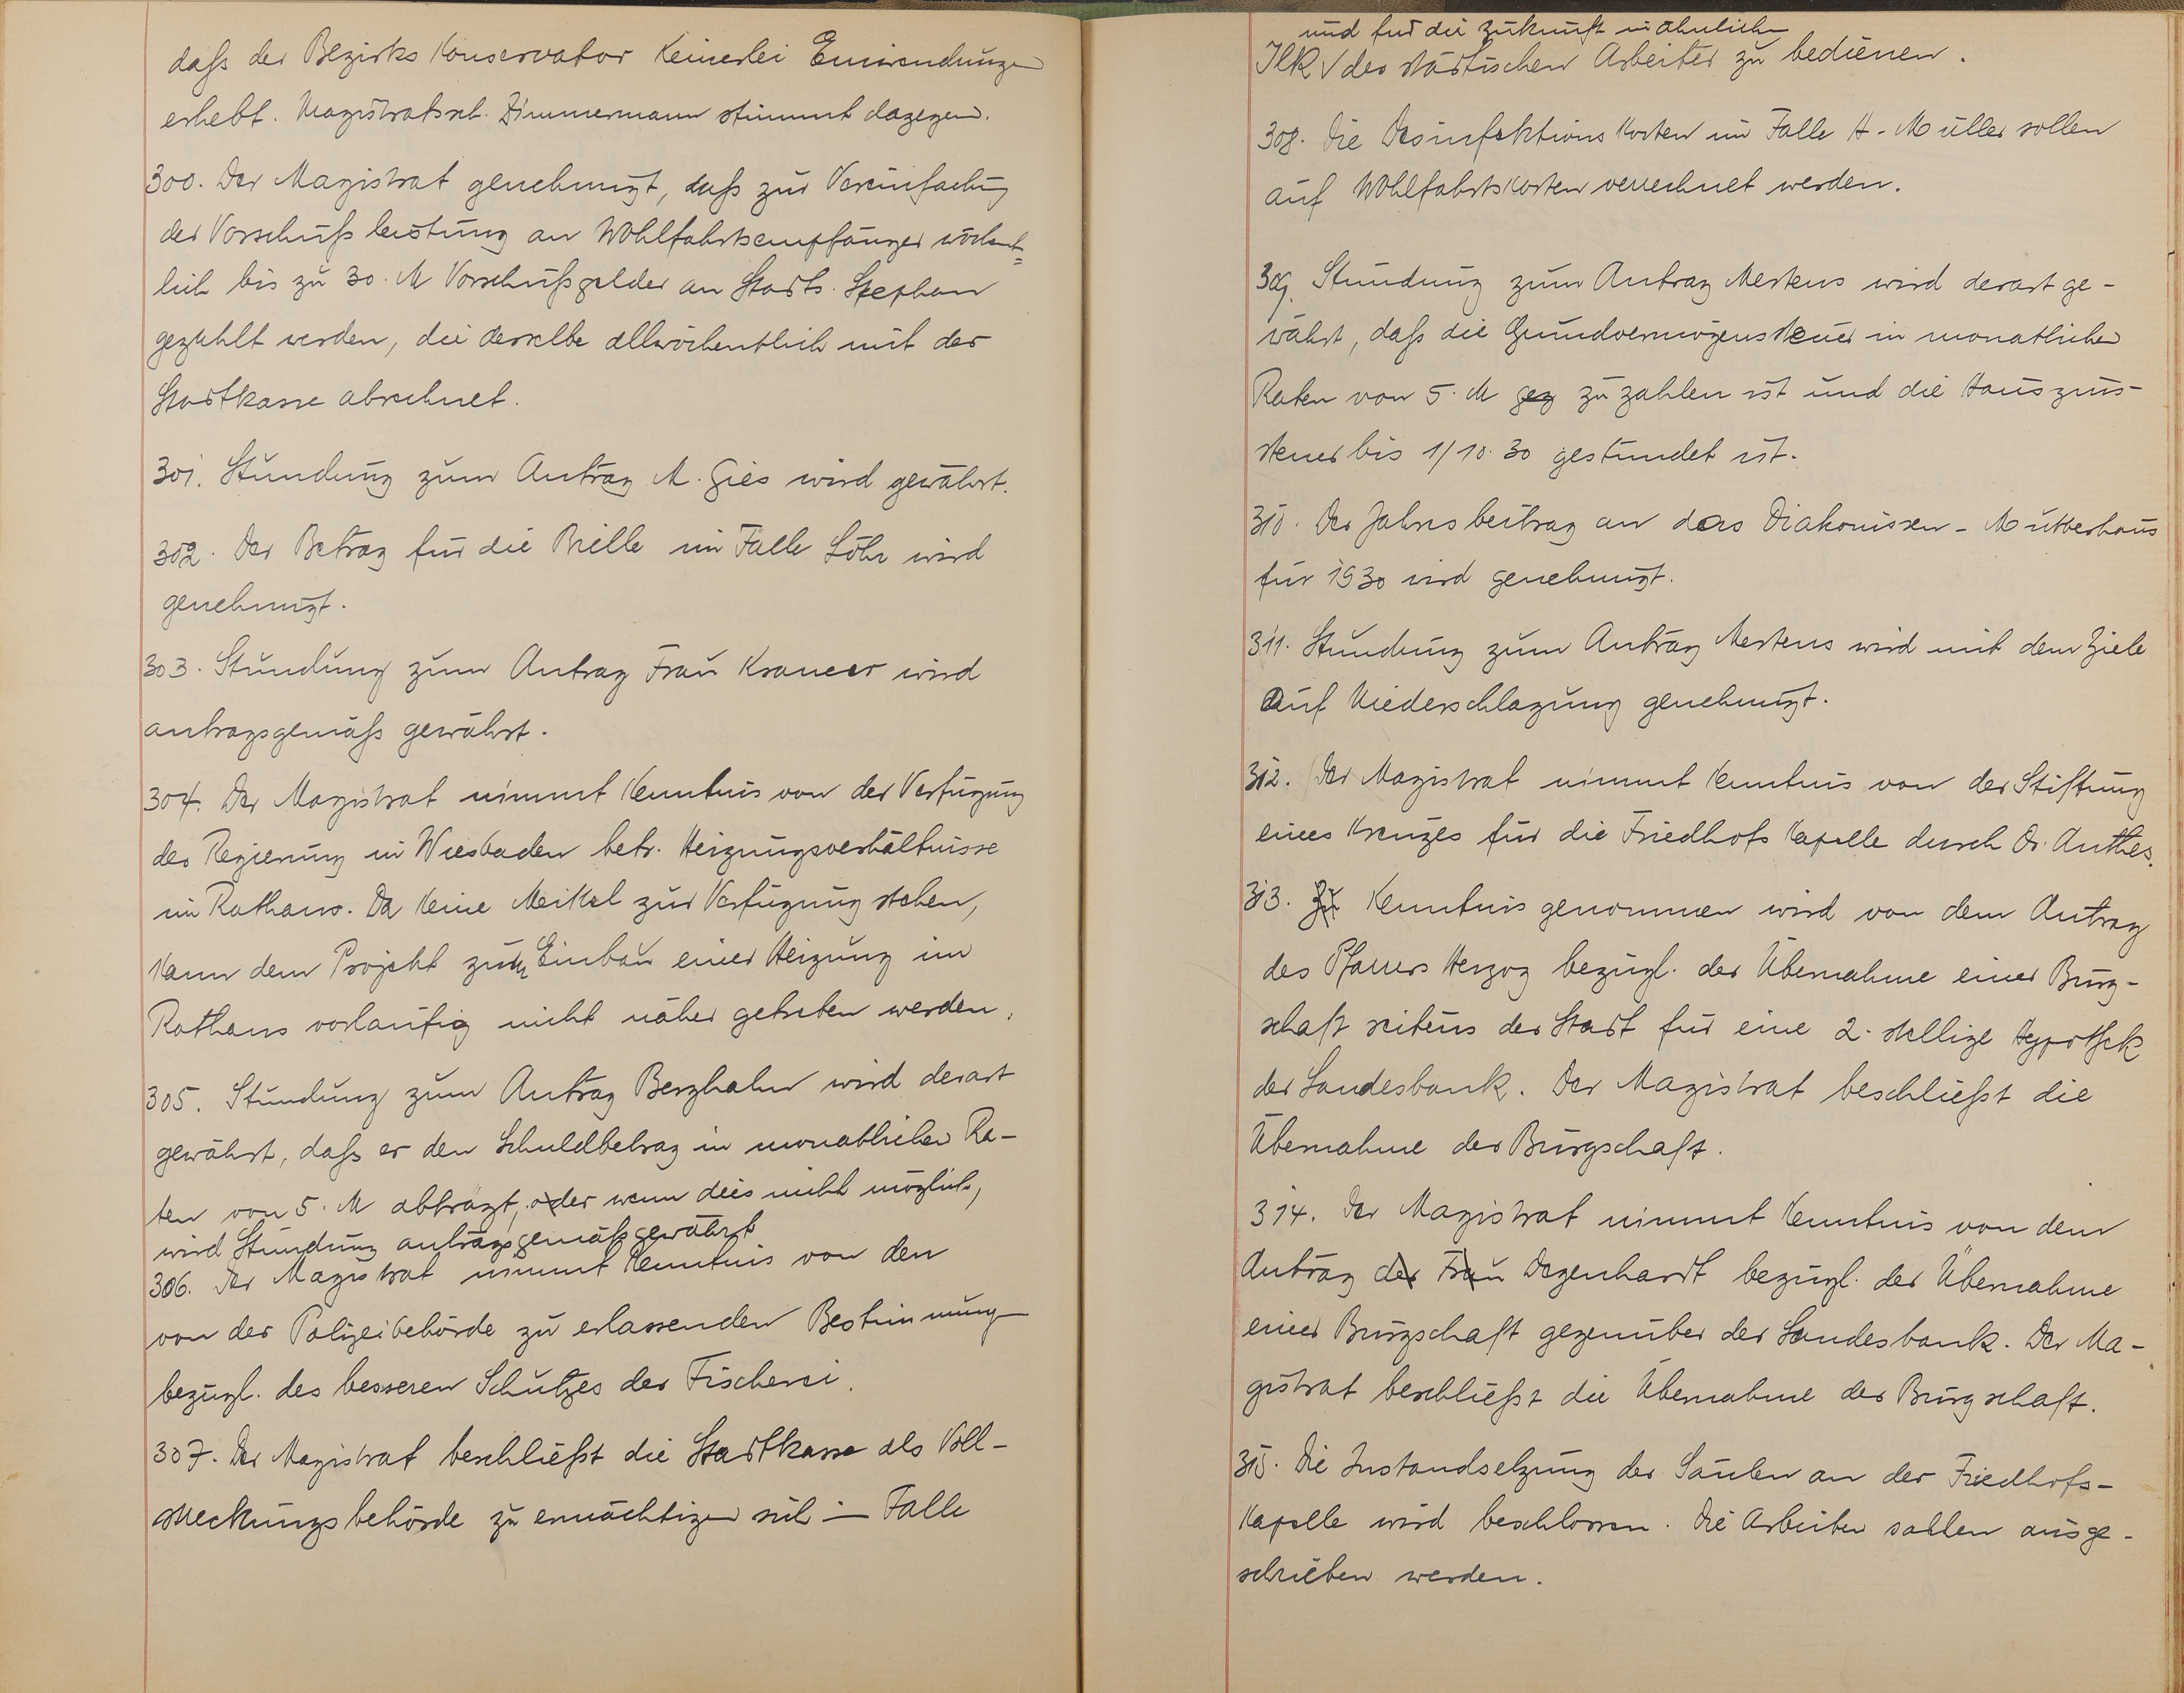 daß der Bezirks Konservator keinerlei Einwendungen
erhebt. Magistratssch. Zimmermann stimmt dagegen.
300. Der Magistrat genehmigt, daß zur Vereinfachung
der Vorschußleistung an Wohlfahrtsempfänger wöchent=
lich bis zu 30. M Vorschußgelder an Stadts. Stephan
gezahlt werden, die derselbe allwöchentlich mit der
Stadtkasse abrechnet.
301. Stundung zum Antrag M. Gies wird gewährt.
302. Der Betrag für die Brille im Falle Löhr wird
genehmigt.
303. Stundung zum Antrag Frau Kramer wird
antragsgemäß gewährt.
304. Der Magistrat nimmt Kenntnis von der Verfügung
der Regierung in Wiesbaden betr. Heizungsverhältnisse
im Rathaus. Da keine Mittel zur Verfügung stehen,
kann dem Projekt zum Einbau einer Heizung im
Rathaus vorläufig nicht näher getreten werden.
305. Stundung zum Antrag Berghahn wird derart
gewährt, daß er den Schuldbetrag in monatlichen Ra-
ten von 5. M abträgt, oder wenn dies nicht möglich,
wird Stundung antragsgemäß gewährt
306. Der Magistrat nimmt Kenntnis von den
von der Polizeibehörde zu erlassenden Bestimmung
bezügl. des besseren Schutzes der Fischerei.
307. Der Magistrat beschließt die Stadtkasse als Voll-
streckungsbehörde zu ermächtigen sich im Falle
und für die Zukunft in ähnlichen
Ilk √ der städtischen Arbeiter zu bedienen.
308. Die Desinfektionskosten im Falle H. Müller sollen
auf Wohlfahrtskosten verrechnet werden.
309. Stundung zum Antrag Mertens wird derart ge-
währt, daß die Grundvermögenssteuer in monatlichen
Raten von 5. M gez zu zahlen ist und die Hauszins-
steuer bis 1/10.30 gestundet ist.
310. Der Jahresbeitrag an das Diakonissen-Mutterhaus
für 1930 wird genehmigt.
311. Stundung zum Antrag Mertens wird mit dem Ziele
auf Niederschlagung genehmigt.
312. Der Magistrat nimmt Kenntnis von der Stiftung
eines Kreuzes für die Friedhofs Kapelle durch Dr. Anthes.
313. Zu Kenntnis genommen wird von dem Antrag
des Pfarrers Herzog bezügl. der Übernahme einer Bürg-
schaft seitens der Stadt für eine 2. stellige Hypothek
der Landesbank. Der Magistrat beschließt die
Übernahme der Bürgschaft.
314. Der Magistrat nimmt Kenntnis von dem
Antrag der Frau Degenhardt bezügl. der Übernahme
einer Bürgschaft gegenüber der Landesbank. Der Ma-
gistrat beschließt die Übernahme der Bürgschaft.
315. Die Instandsetzung der Säulen an der Friedhofs-
Kapelle wird beschlossen. Die Arbeiten sollen ausge-
schrieben werden.